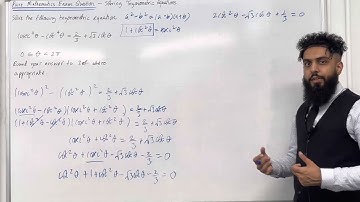 Pure Mathematics Exam Question - Solving Trigonometric Equations
Solve the following trigonometric equation
a² - b² = (a - b)(a + b)
cosec⁴θ - cot⁴θ = 2/3 + √3 cotθ
1 + cot²θ = cosec²θ
0 ≤ θ ≤ 2π
Round your answer to 2dp where
appropriate
(cosec²θ)² - (cot²θ)² = 2/3 + √3 cotθ
(cosec²θ - cot²θ)(cosec²θ + cot²θ) = 2/3 + √3 cotθ
(1 + cot²θ - cot²θ)(cosec²θ + cot²θ) = 2/3 + √3 cotθ
cosec²θ + cot²θ = 2/3 + √3 cotθ
cot²θ + cosec²θ - √3 cotθ - 2/3 = 0
cot²θ + 1 + cot²θ - √3 cotθ - 2/3 = 0
2cot²θ - √3 cotθ + 1/3 = 0